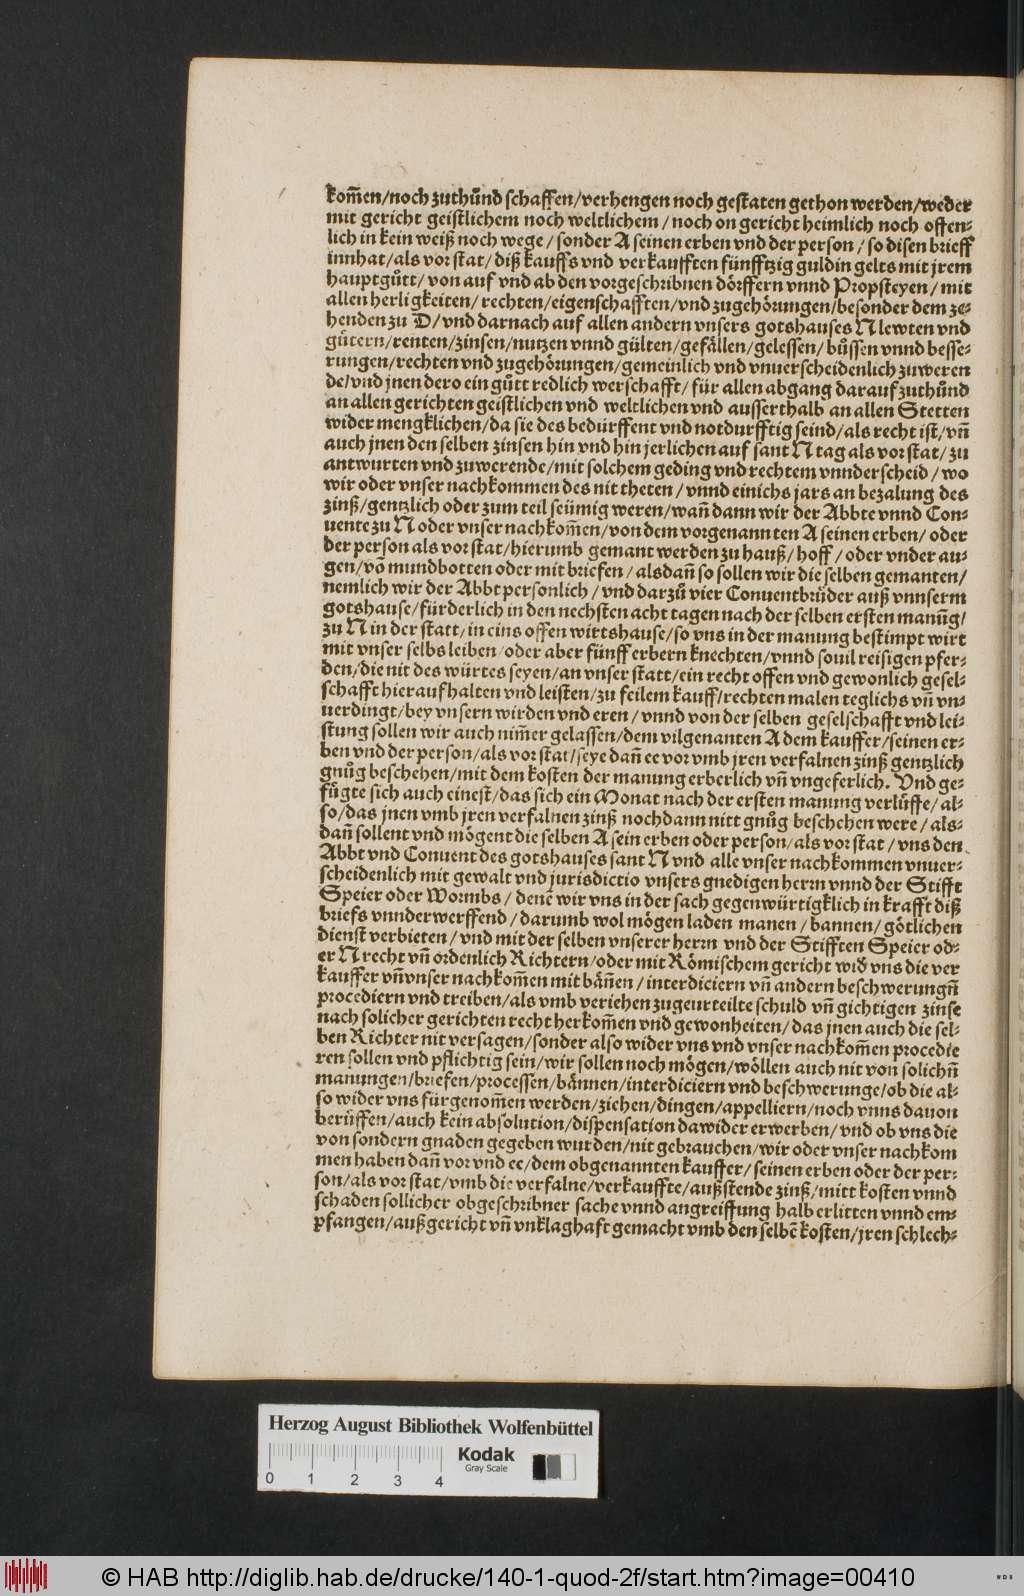 kom̃en/noch zuthůnd schaffen/verhengen noch gestaten gethon werden/weder
mit gericht geistlichem noch weltlichem / noch on gericht heimlich noch offen⸗
lich in kein weiß noch wege / sonder A seinen erben vnd der person / so disen brieff
innhat/als vor stat/ diß kauffs vnd verkaufften fünfftzig guldin gelts mit jrem
hauptgůtt/ von auf vnd ab den vorgeschribnen dörffern vnnd Propsteyen / mit
allen herligkeiten/ rechten/eigenschafften/vnd zugehörungen/besonder dem ze⸗
henden zu D/ vnd darnach auf allen andern vnsers gotshauses N lewten vnd
gůtern/renten/zinsen/nutzen vnnd gülten/gefällen/gelessen/ bůssen vnnd besse⸗
rungen/rechten vnd zugehörungen/gemeinlich vnd vnuerscheidenlich zuweren
de/vnd jnen dero ein gůtt redlich werschafft/ für allen abgang darauf zuthůnd
an allen gerichten geistlichen vnd weltlichen vnd ausserthalb an allen Stetten
wider mengklichen/da sie des bedürffent vnd notdurfftig seind/als recht ist/vñ
auch jnen den selben zinsen hin vnd hin jerlichen auf sant N tag als vor stat/ zu
antwurten vnd zuwerende/mit solchem geding vnd rechtem vnnderscheid / wo
wir oder vnser nachkommen des nit theten / vnnd einichs jars an bezalung des
zinß/gentzlich oder zum teil seümig weren/wañ dann wir der Abbte vnnd Con⸗
uente zu N oder vnser nachkom̃en/von dem vorgenannten A seinen erben/ oder
der person als vor stat/hierumb gemant werden zu hauß/ hoff / oder vnder au⸗
gen/võ mundbotten oder mit briefen / alsdañ so sollen wir die selben gemanten/
nemlich wir der Abbt personlich / vnd darzů vier Conuentbrüder auß vnnserm
gotshause/fürderlich in den nechsten acht tagen nach der selben ersten manũg/
zu N in der statt/in eins offen wirtshause/so vns in der manung bestimpt wirt
mit vnser selbs leiben/oder aber fünff erbern knechten/vnnd souil reisigen pfer⸗
den/die nit des würtes seyen/an vnser statt/ein recht offen vnd gewonlich gesel⸗
schafft hierauf halten vnd leisten/zu feilem kauff/rechten malen teglichs vñ vn⸗
uerdingt/bey vnsern wirden vnd eren / vnnd von der selben geselschafft vnd lei⸗
stung sollen wir auch nim̃er gelassen/dem vilgenanten A dem kauffer/seinen er⸗
ben vnd der person/als vor stat/seye dañ ee vor vmb jren verfalnen zinß gentzlich
gnůg beschehen/mit dem kosten der manung erberlich vñ vngeferlich. Vnd ge⸗
fůgte sich auch einest/das sich ein Monat nach der ersten manung verlůffe/ al⸗
so/das jnen vmb jren verfalnen zinß nochdann nitt gnůg beschehen were / als⸗
dañ sollent vnd mögent die selben A sein erben oder person/als vor stat / vns den
Abbt vnd Conuent des gotshauses sant N vnd alle vnser nachkommen vnuer⸗
scheidenlich mit gewalt vnd jurisdictio vnsers gnedigen herrn vnnd der Stifft
Speier oder Wormbs / denẽ wir vns in der sach gegenwürtigklich in krafft diß
briefs vnnderwerffend / darumb wol mögen laden manen / bannen/ götlichen
dienst verbieten / vnd mit der selben vnserer herrn vnd der Stifften Speier od⸗
er N recht vñ ordenlich Richtern/oder mit Römischem gericht wiđ vns die ver
kauffer vñ vnser nachkom̃en mit bäñen / interdiciern vñ andern beschwerungñ
procediern vnd treiben/als vmb veriehen zugeurteilte schuld vñ gichtigen zinse
nach solicher gerichten recht herkom̃en vnd gewonheiten/ das jnen auch die sel⸗
ben Richter nit versagen/sonder also wider vns vnd vnser nachkom̃en procedie
ren sollen vnd pflichtig sein/wir sollen noch mögen/wöllen auch nit von solichñ
manungen/briefen/processen/bännen/interdiciern vnd beschwerunge/ob die al⸗
so wider vns fürgenom̃en werden/ziehen/dingen/appelliern/noch vnns dauon
berüffen/auch kein absolution/dispensation dawider erwerben/ vnd ob vns die
von sondern gnaden gegeben wurden/nit gebrauchen/wir oder vnser nachkom
men haben dañ vor vnd ee/dem obgenannten kauffer/ seinen erben oder der per⸗
son/als vor stat/vmb die verfalne/verkauffte/außstende zinß/mitt kosten vnnd
schaden sollicher obgeschribner sache vnnd angreiffung halb erlitten vnnd em⸗
pfangen/außgericht vñ vnklaghaft gemacht vmb den selbẽ kosten/jren schlech⸗
Herzog August Bibliothek Wolfenbüttel
Kodak
Gray Scale
0 1 2 3 4
© HAB http://diglib.hab.de/drucke/140-1-quod-2f/start.htm?image=00410